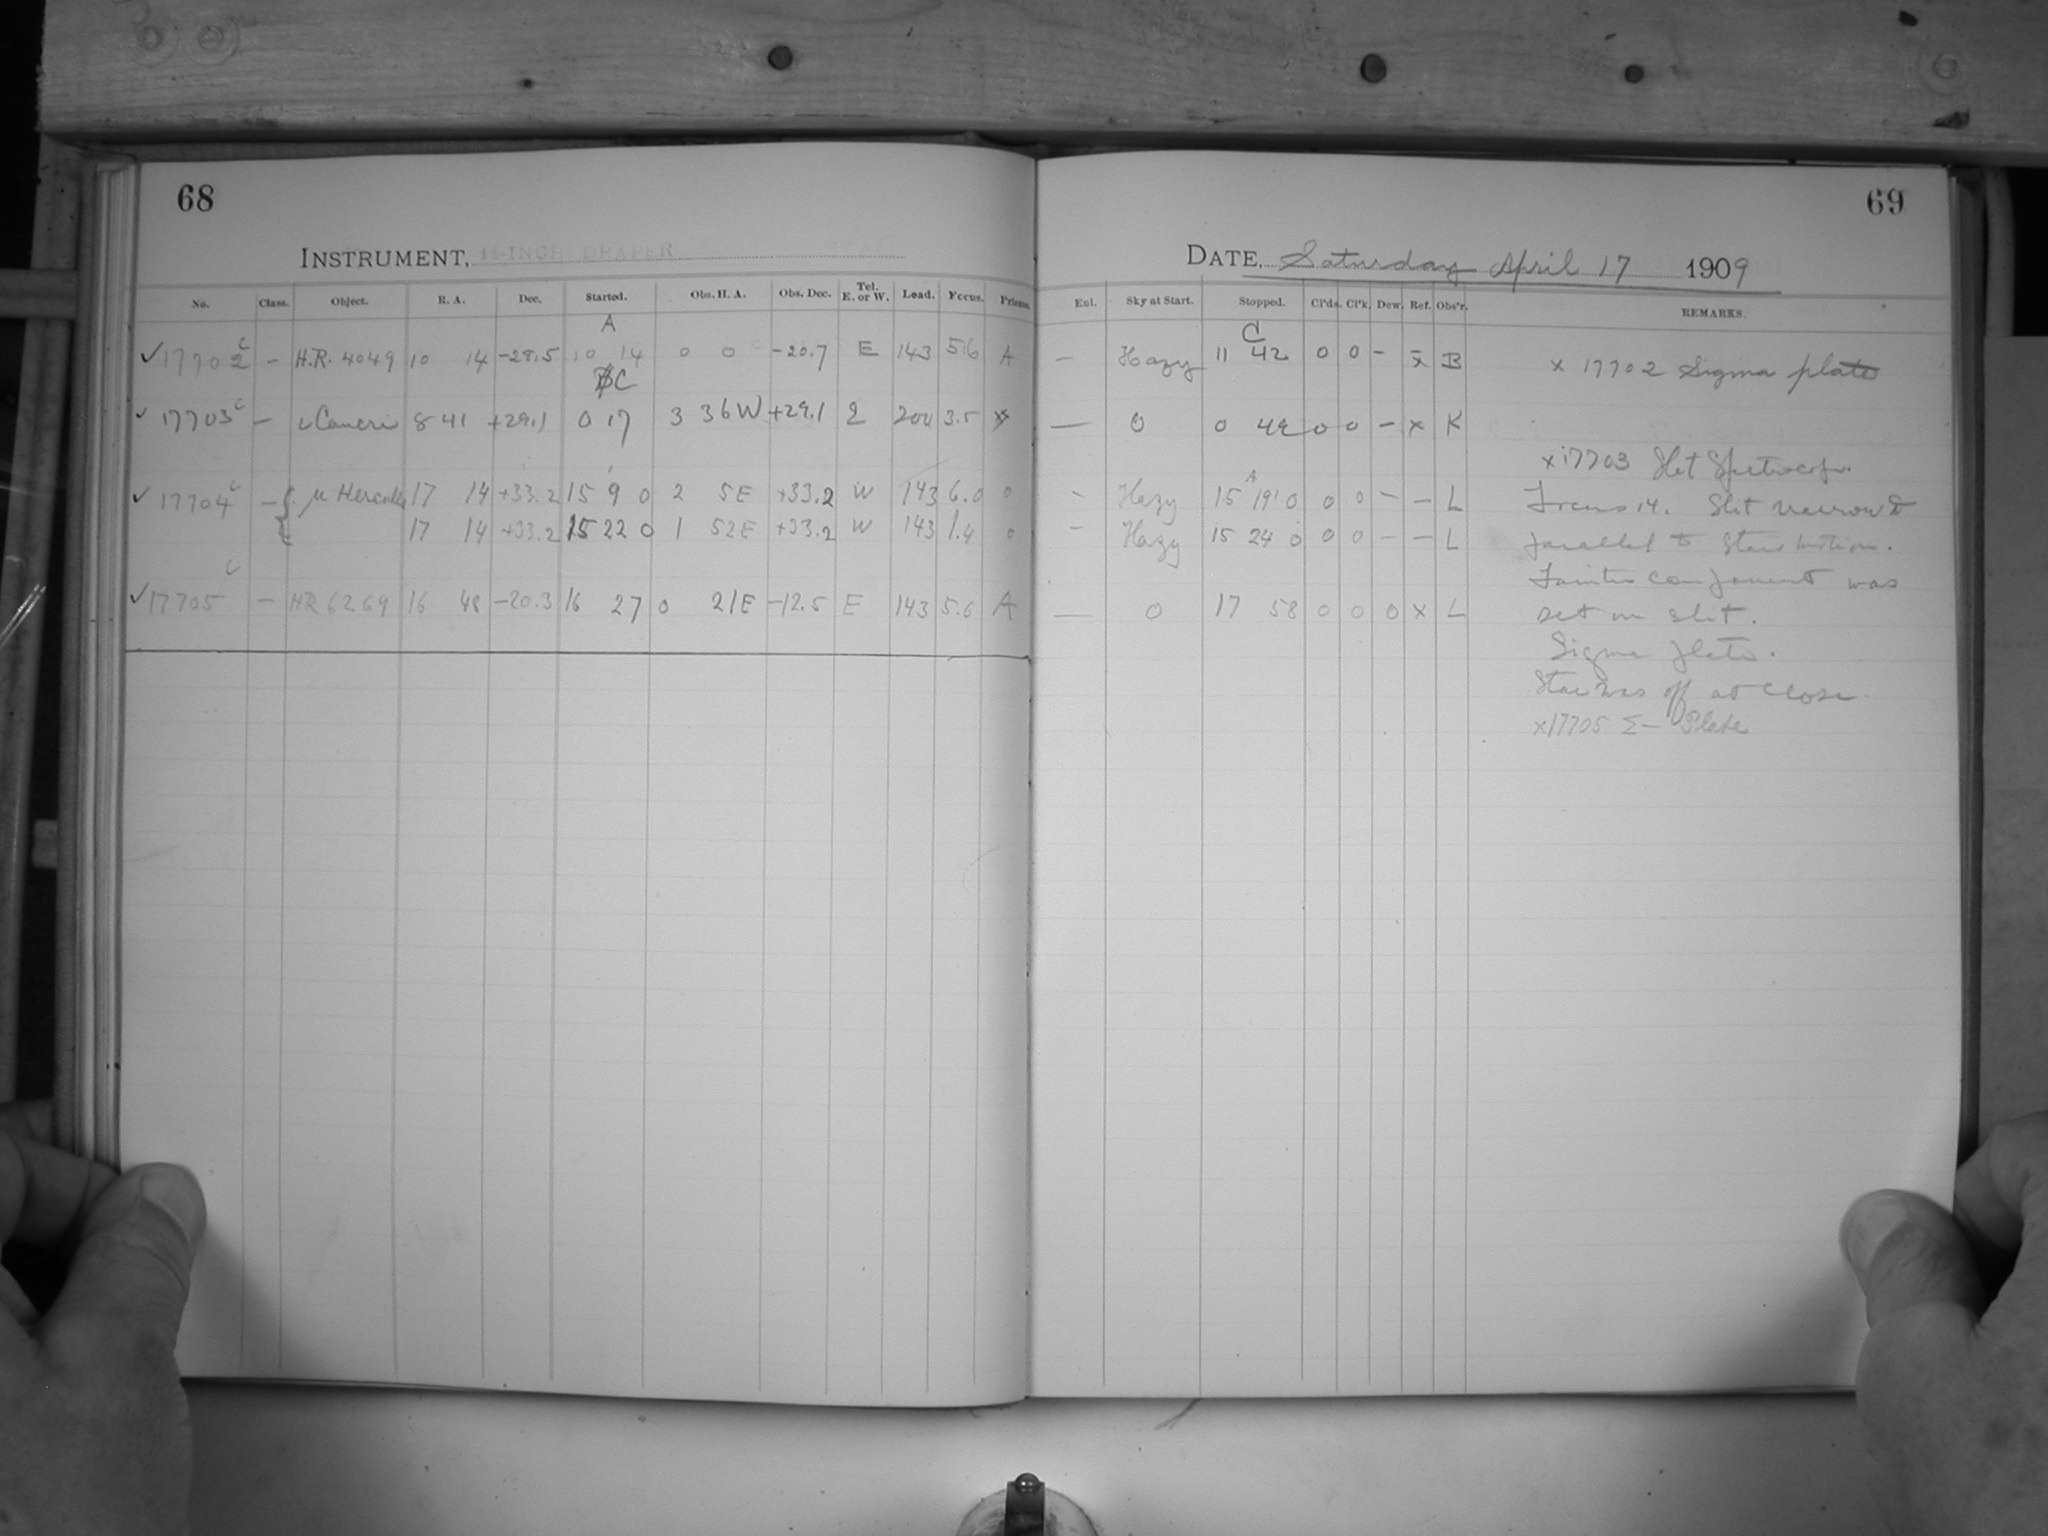 68
INSTRUMENT, 11-INCH DRAPER
No. Class. Object. R. A. Dec. Started. Obs. H. A. Obs. Dec. Tel. E. or W. Load. Focus. Prisms.
A
✓17702 c — H.R. 4049 10 14 -28.5 10 14 0 0 -20.7 E 143 5.6 A
C
✓ 17703 c — ι Cancri 8 41 +29.1 0 17 3 36 W +29.1 E 200 3.5
✓ 17704 c — { μ Hercules 17 14 +33.2 15 9 0 2 5 E +33.2 W 143 6.0 0
17 14 +33.2 15 22 0 1 52 E +33.2 W 143 1.4 0
✓17705 c — HR 6269 16 48 -20.3 16 27 0 21 E -12.5 E 143 5.6 A
69
DATE, Saturday April 17 1909
Enl. Sky at Start. Stopped. Cl'ds. Cl'k. Dew. Ref. Obs'r. REMARKS.
C
— Hazy 11 42 0 0 - x B x 17702 Sigma plate
— 0 0 0 0 - x K
x 17703 Slit Spectroscope.
A
- Hazy 15 19 0 0 0 - - L Focus 14. Slit narrow &
- Hazy 15 24 0 0 0 - - L parallel to Star's motion.
Fainter component was
— 0 17 58 0 0 0 x L set on slit.
Sigma plate.
Star was off at close.
x17705 Σ — Plate